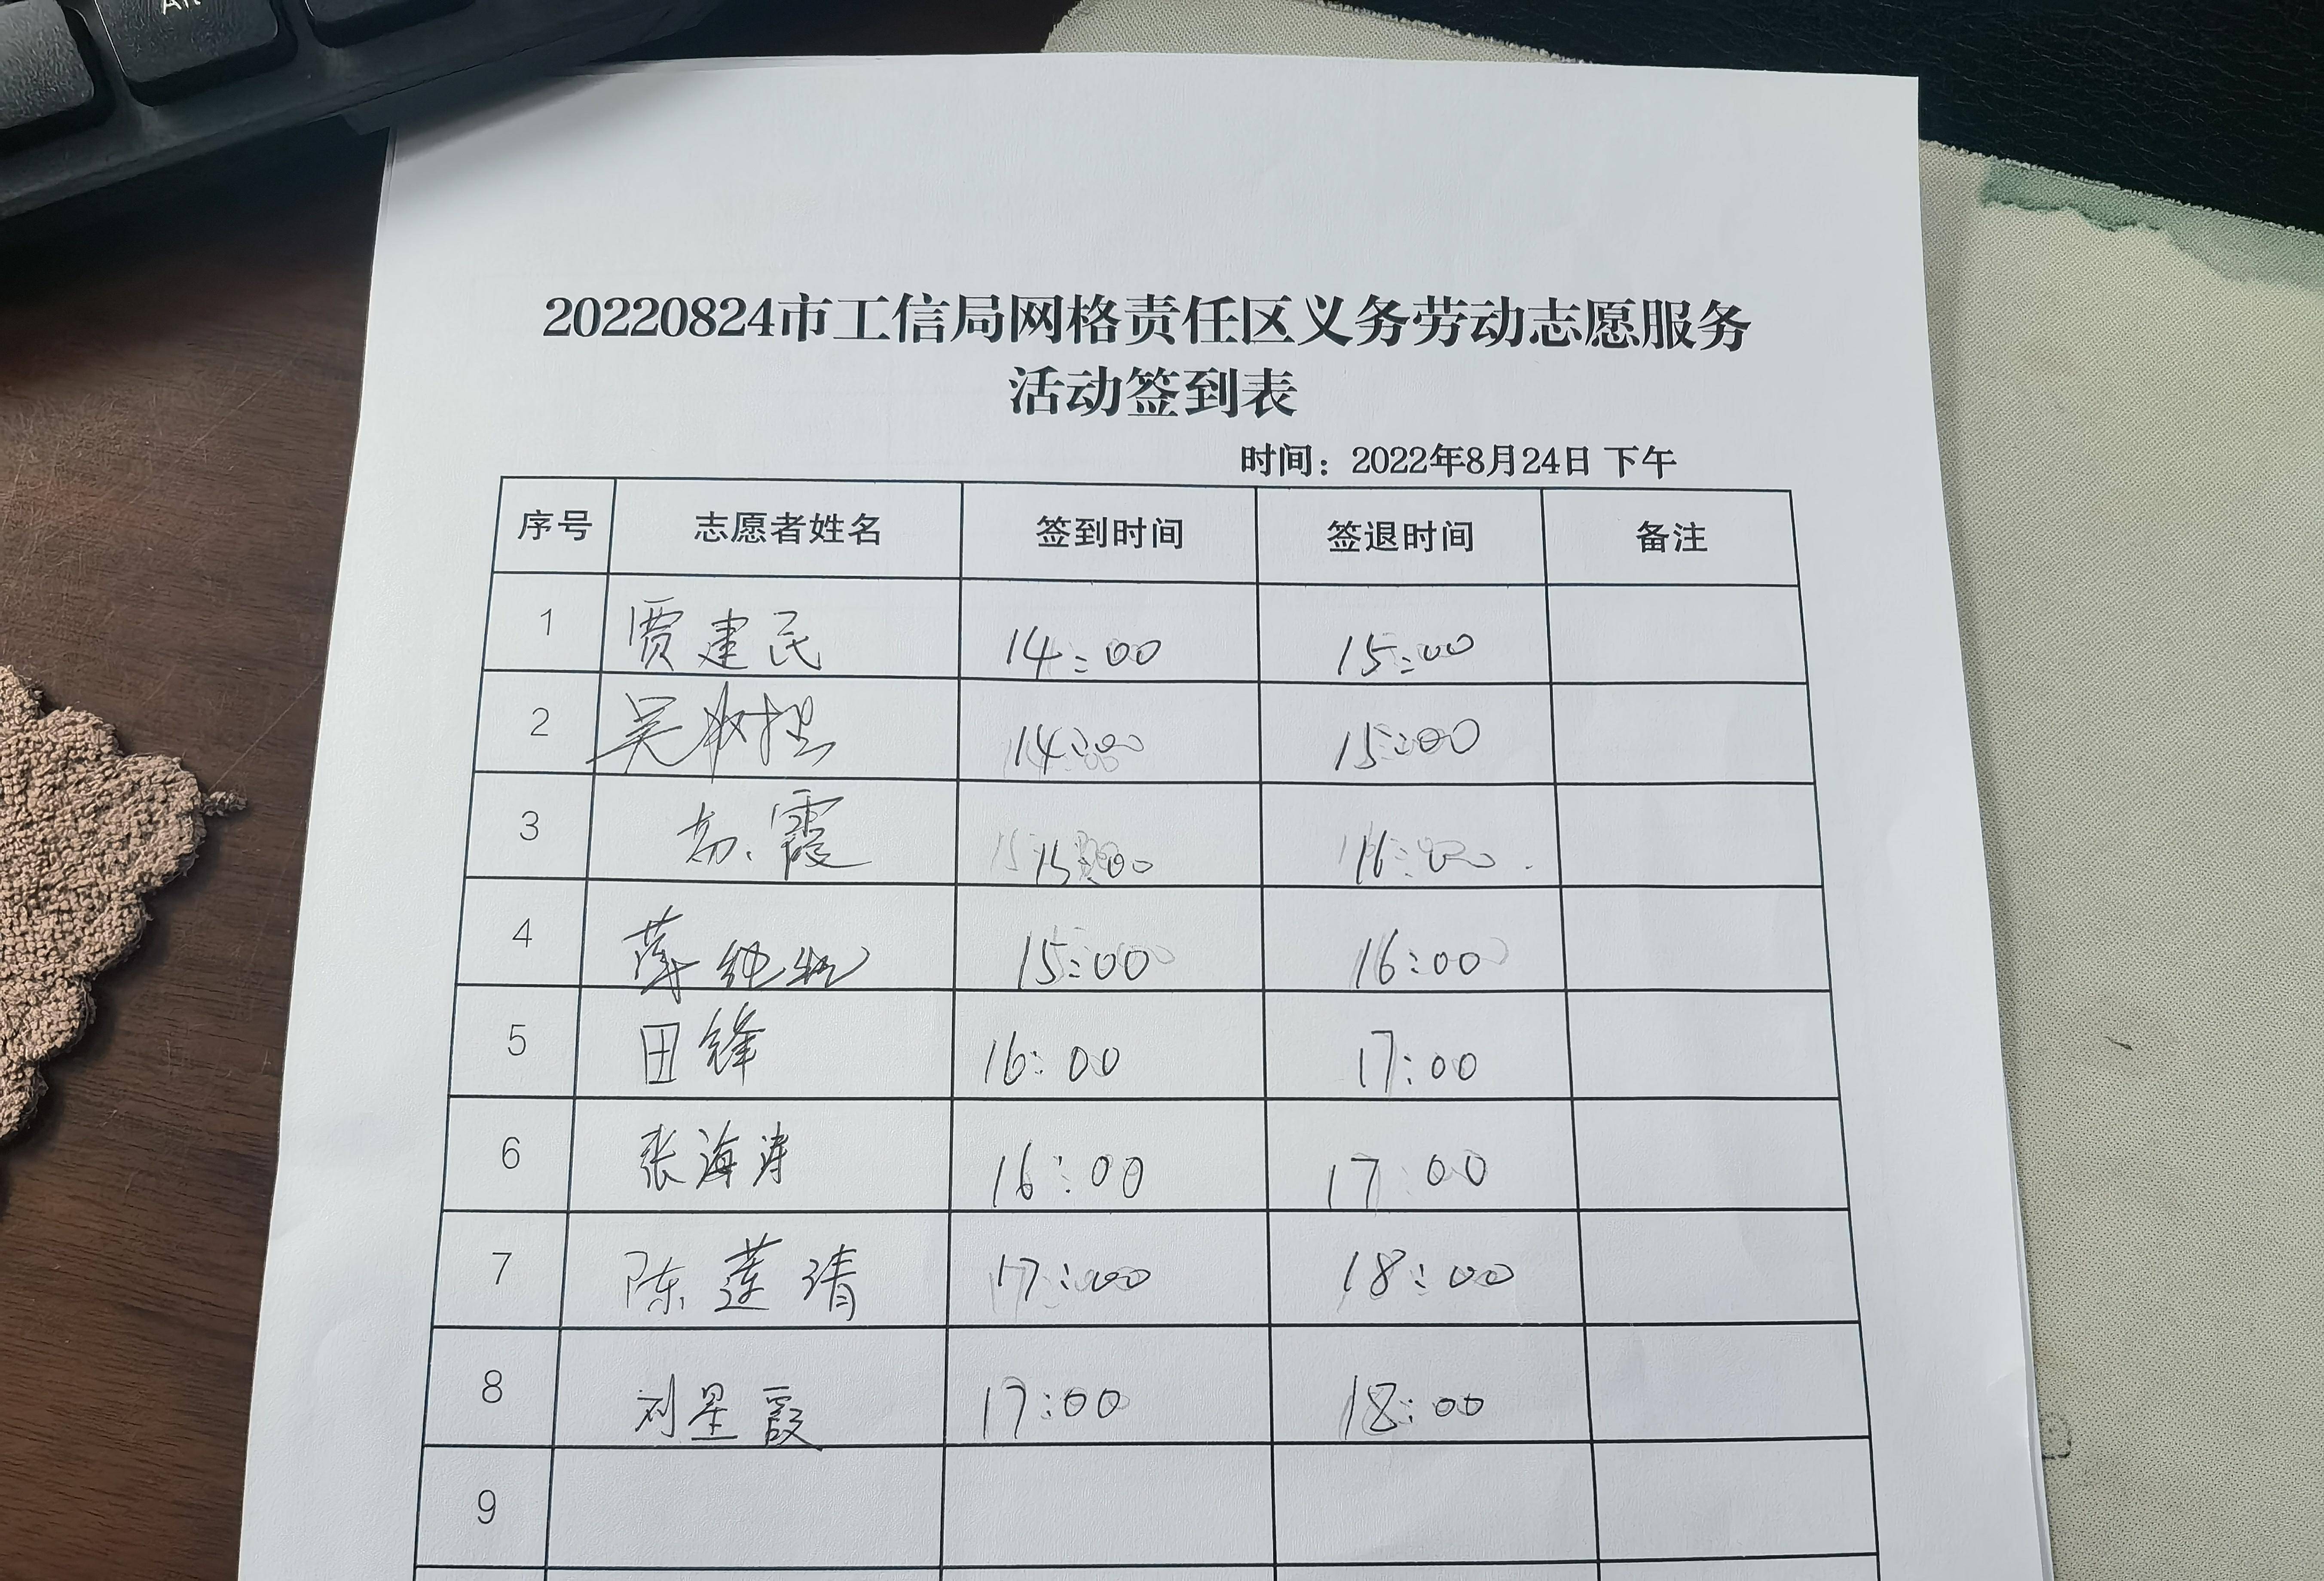 Alt
20220824市工信局网格责任区义务劳动志愿服务
活动签到表
时间：2022年8月24日 下午
序号 志愿者姓名 签到时间 签退时间 备注
1 贾建民 14:00 15:00
2 吴 14:00 15:00
3 霞 15:00 16:00
4 15:00 16:00
5 田锋 16:00 17:00
6 张海涛 16:00 17:00
7 陈莲清 17:00 18:00
8 刘星霞 17:00 18:00
9